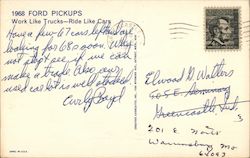 1968 FORD PICKUPS
Work Like Trucks—Ride Like Cars
Have a few 67 cars left and are
looking for 68's soon. Why
not stop see if we can
make a trade. Also our
used car lot is well stocked
Curly Boyd
Elwood G. Walters
605 E Seminary
Greencastle, Ind.
201 E.
Warrensburg Mo
64093